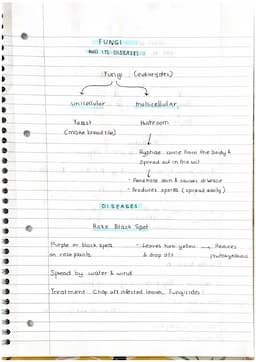 FUNGI
AND ITS DISEASES
Fungi (eukaryotes)
unicellular multicellular
Yeast Mushroom
(make bread rise)
Hyphae: come from the body &
spread out in the soil
- Penetrate skin & causes disease
- Produces spores (spread easily)
DISEASES
Rose Black Spot
Purple or black spots - Leaves turn yellow → Reduces
on rose plants & drop off photosynthesis
Spread by water & wind
Treatment: Chop off infected leaves, Fungicides